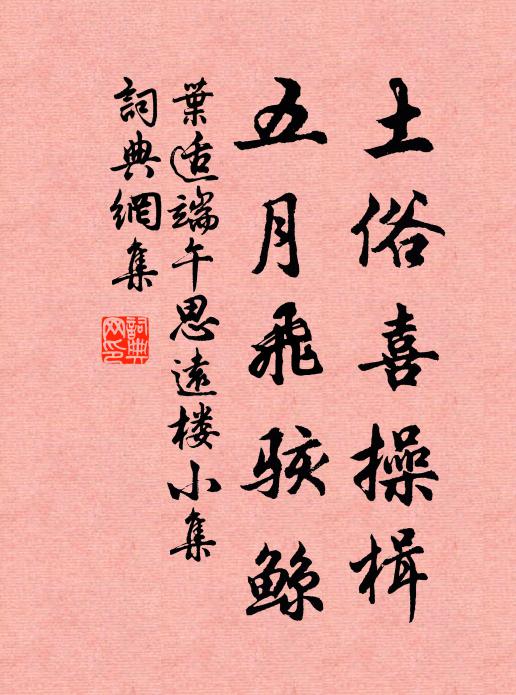 土俗喜操楫
五月飛駭鯨
葉适端午思遠楼小集
詞典網集
詞典网印